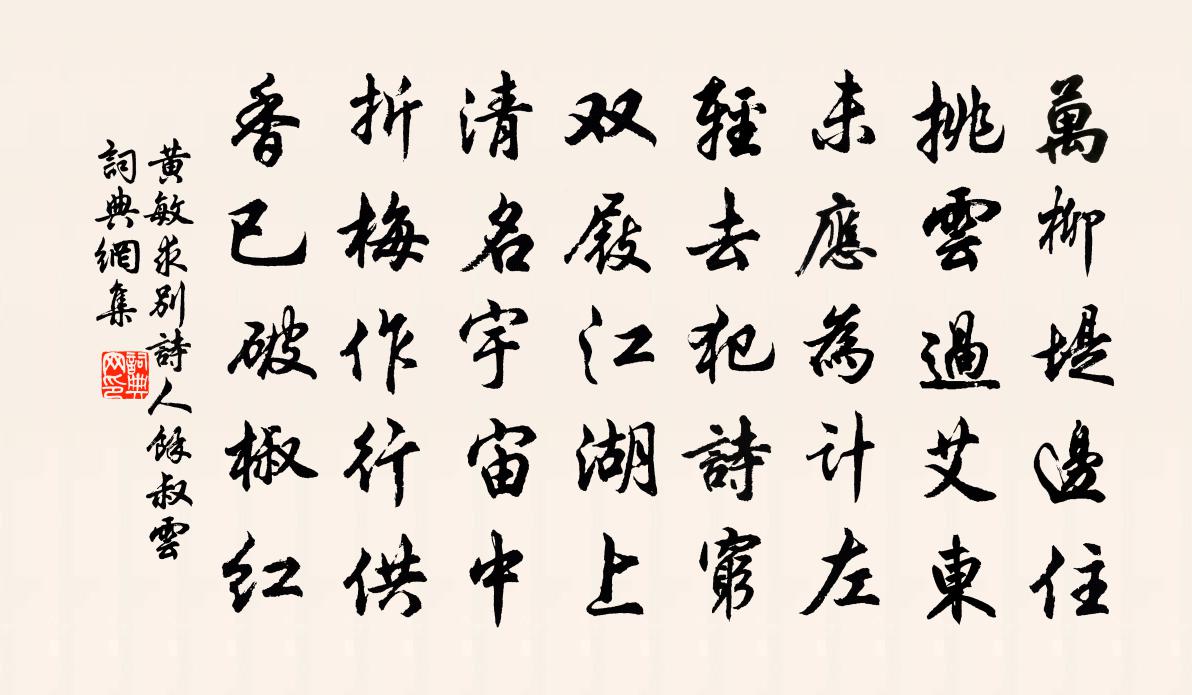 萬柳堤邊住
挑雲過艾東
未應為計左
輕去犯詩窮
双屐江湖上
清名宇宙中
折梅作行供
香已破椒红
黄敏求别詩人餘叔雲
詞典網集
詞典网印